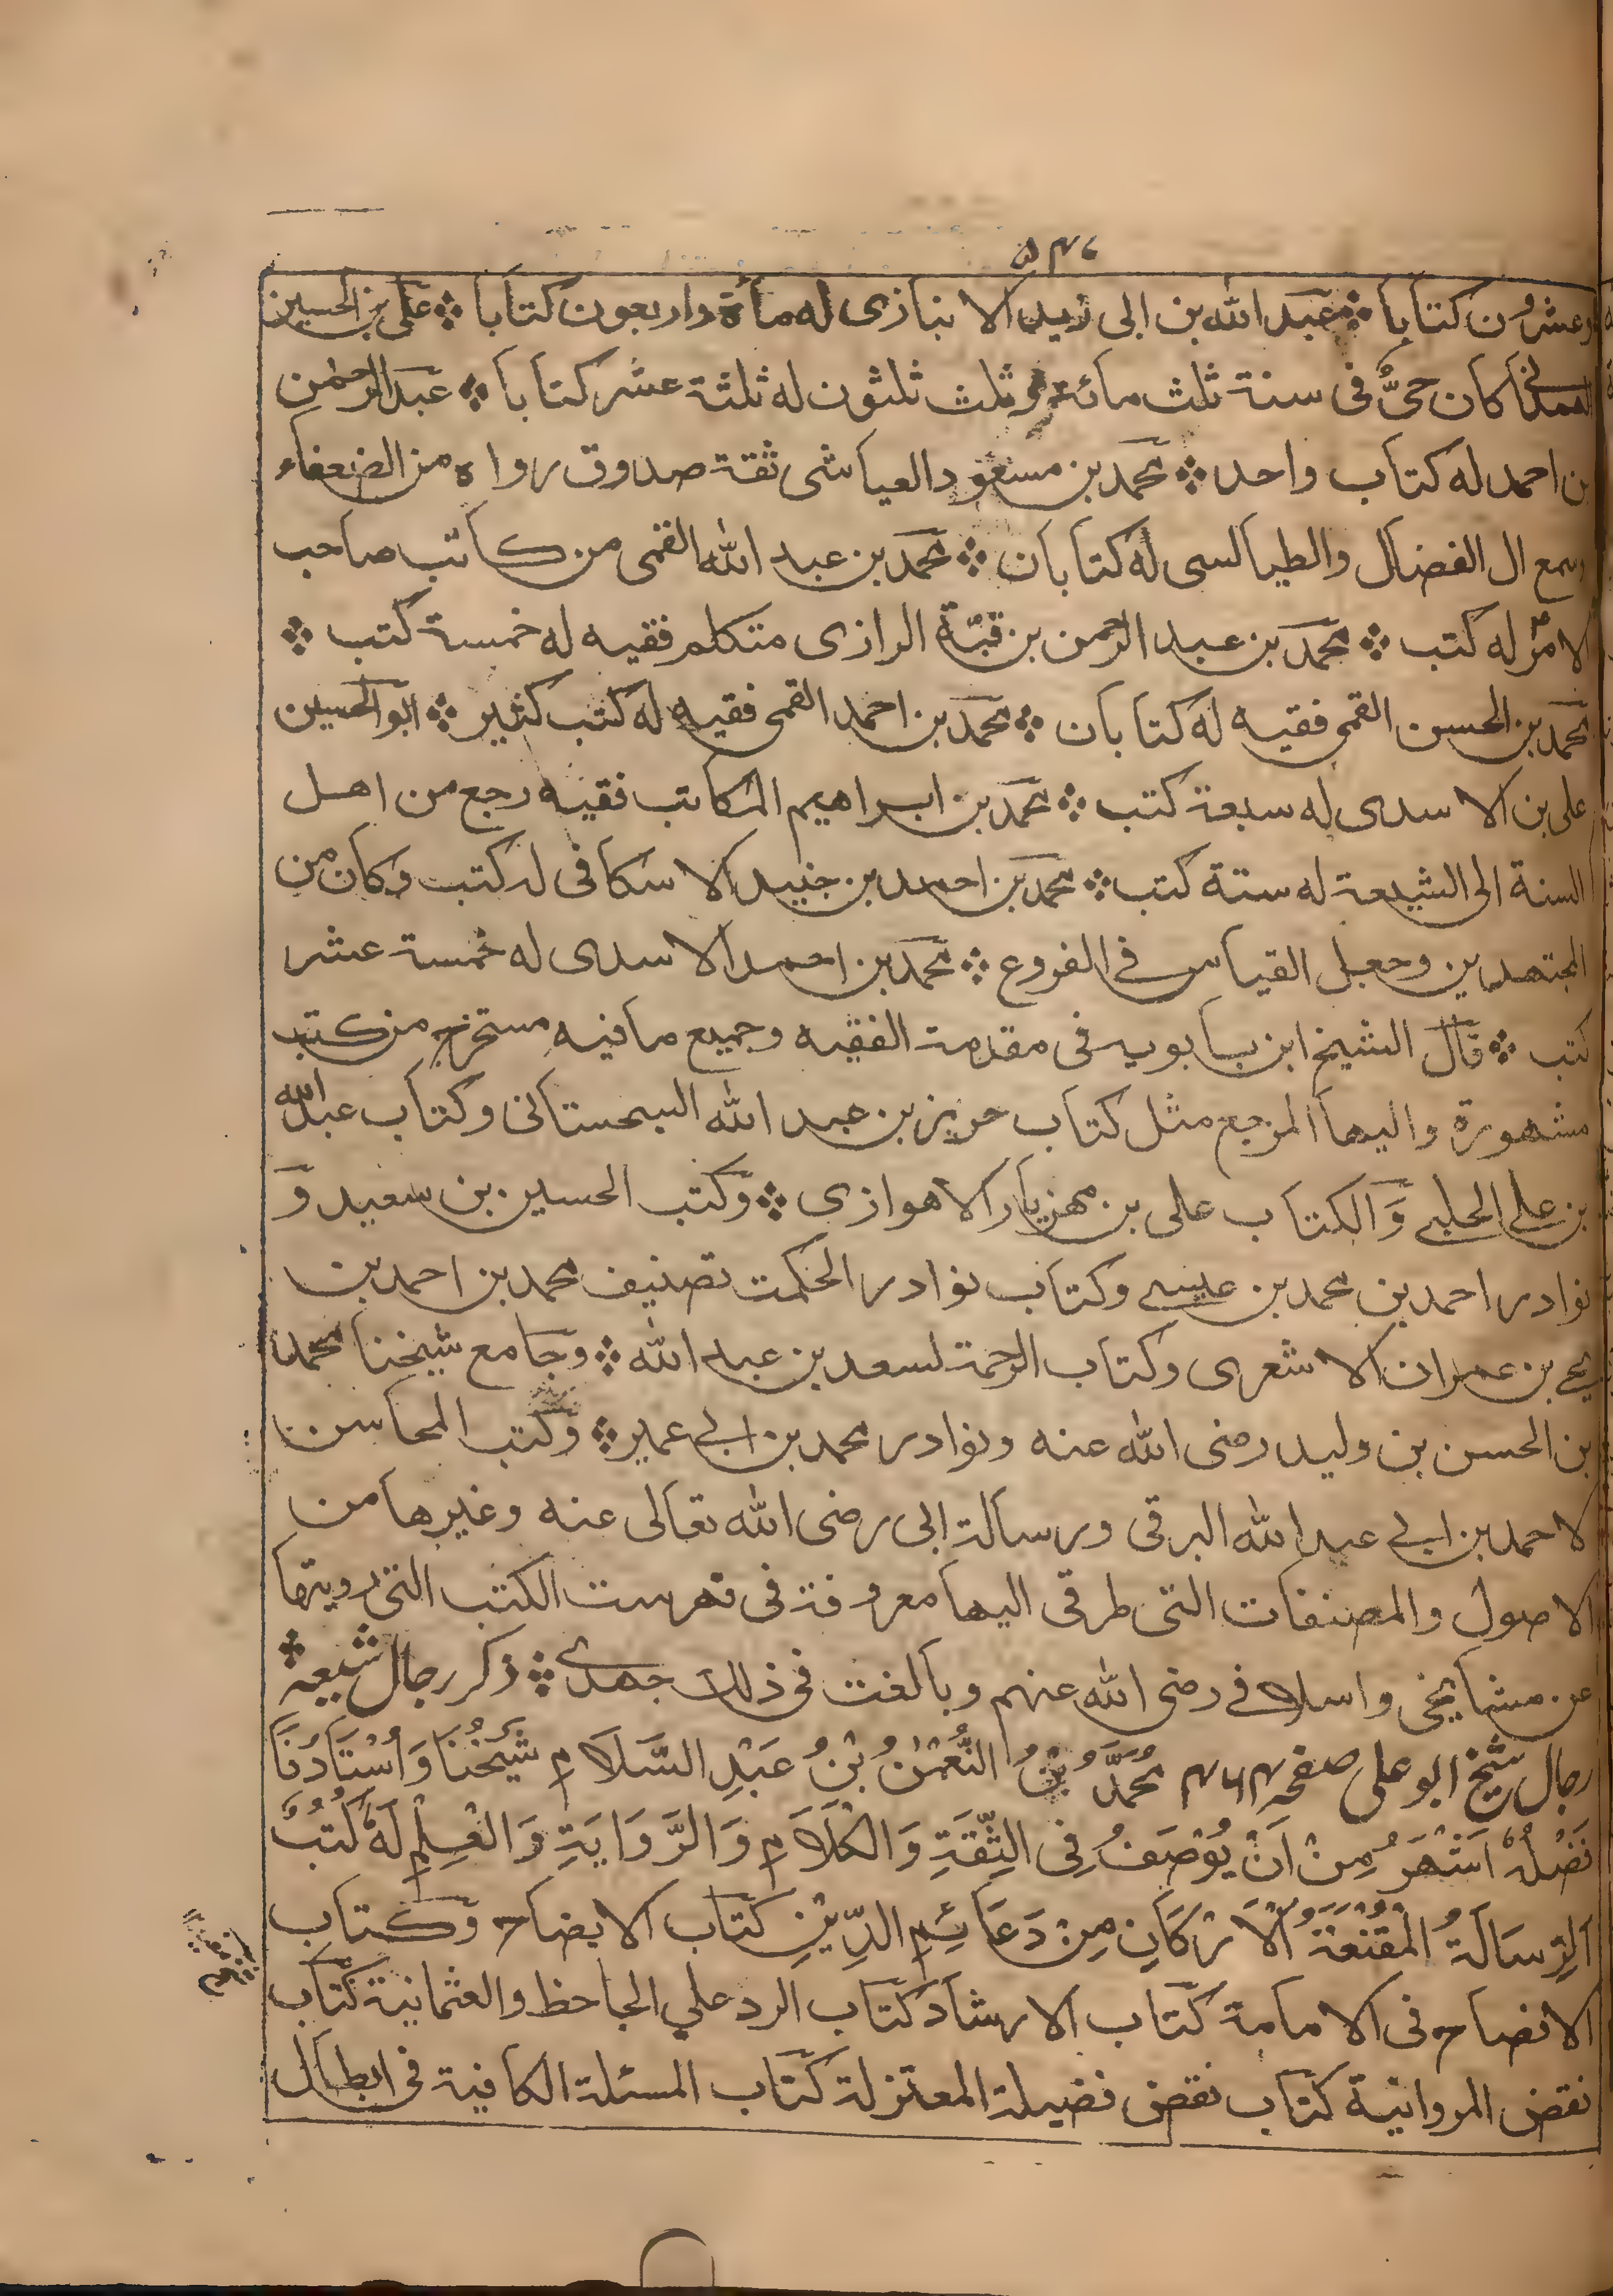 ۵۴۶
وعشرون كتابا ؞ عبد الله بن ابی زيد الا نبازی له مأة واربعون كتابا ؞ علی بن الحسين
كان حیٌّ فی سنة ثلث مائة وثلث ثلثون له ثلثة عشر كتابا ؞ عبد الرحمن
بن احمد له كتاب واحد ؞ محمد بن مسعود العياشی ثقة صدوق رواه من الضعفاء
وسمع ال الفضال والطيالسی له كتابان ؞ محمد بن عبد الله القمی من كاتب صاحب
الامر له كتب ؞ محمد بن عبد الرحمن بن قبّة الرازی متكلم فقيه له خمسة كتب ؞
محمد بن الحسن القمی فقيه له كتابان ؞ محمد بن احمد القمی فقيه له كتب كثير ؞ ابو الحسين
علی بن الاسدی له سبعة كتب ؞ محمد بن ابراهيم الكاتب فقيه رجع من اهل
السنة الی الشيعة له ستة كتب ؞ محمد بن احمد بن جنيد الا سكافی له كتب وكان من
المجتهدين وجعل القياس فی الفروع ؞ محمد بن احمد الاسدی له خمسة عشر
كتب ؞ قال الشيخ ابن بابويه فی مقدمة الفقيه وجميع مافيه مستخرج من كتب
مشهورة واليها المرجع مثل كتاب حريز بن عبد الله السجستانی وكتاب عبد الله
بن علی الحلبی وَالكتاب علی بن مهزيار الاهوازی ؞ وكتب الحسين بن سعيد وَ
نوادر احمد بن محمد بن عيسی وكتاب نوادر الحكمت تصنيف محمد بن احمد بن
يحيی بن عمران الاشعری وكتاب الرحمة لسعد بن عبد الله ؞ وجامع شيخنا محمد
بن الحسن بن وليد رضی الله عنه ونوادر محمد بن ابی عمير ؞ وكتب المحاسن
لاحمد بن ابی عبد الله البرقی ورسالة ابی رضی الله تعالی عنه وغيرها من
الاصول والمصنفات التی طرقی اليها معروفة فی فهرست الكتب التی رويتها
عن مشايخی واسلافی رضی الله عنهم وبالغت فی ذلك جهدی ؞ ذكر رجال شيعه ؞
رجال شيخ ابو علی صفحه ۴۶۴ مُحَمَّدُ بْنُ النُّعْمٰنُ بْنُ عَبْدِ السَّلَامِ شَيْخُنَا وَاُسْتَادُنَا
فَضْلُهٗ اَشْهَرُ مِنْ اَنْ يُوْصَفُ فِی الثِّقَةِ وَالْكَلَامِ وَالرَّوَايَةِ وَالْعِلْمِ لَهٗ كُتُبٌ
اَلرِّسَالَةُ الْمُقْنِعَةُ الْاَرْكَانِ مِنْ دَعَائِمِ الدِّيْنِ كتاب الايضاح وكتاب
الافصاح فی الامامة كتاب الارشاد كتاب الرد علی الجاحظ والعثمانية كتاب
نقض المروانية كتاب نقض فضيلة المعتزلة كتاب المسئلة الكافية فی ابطال